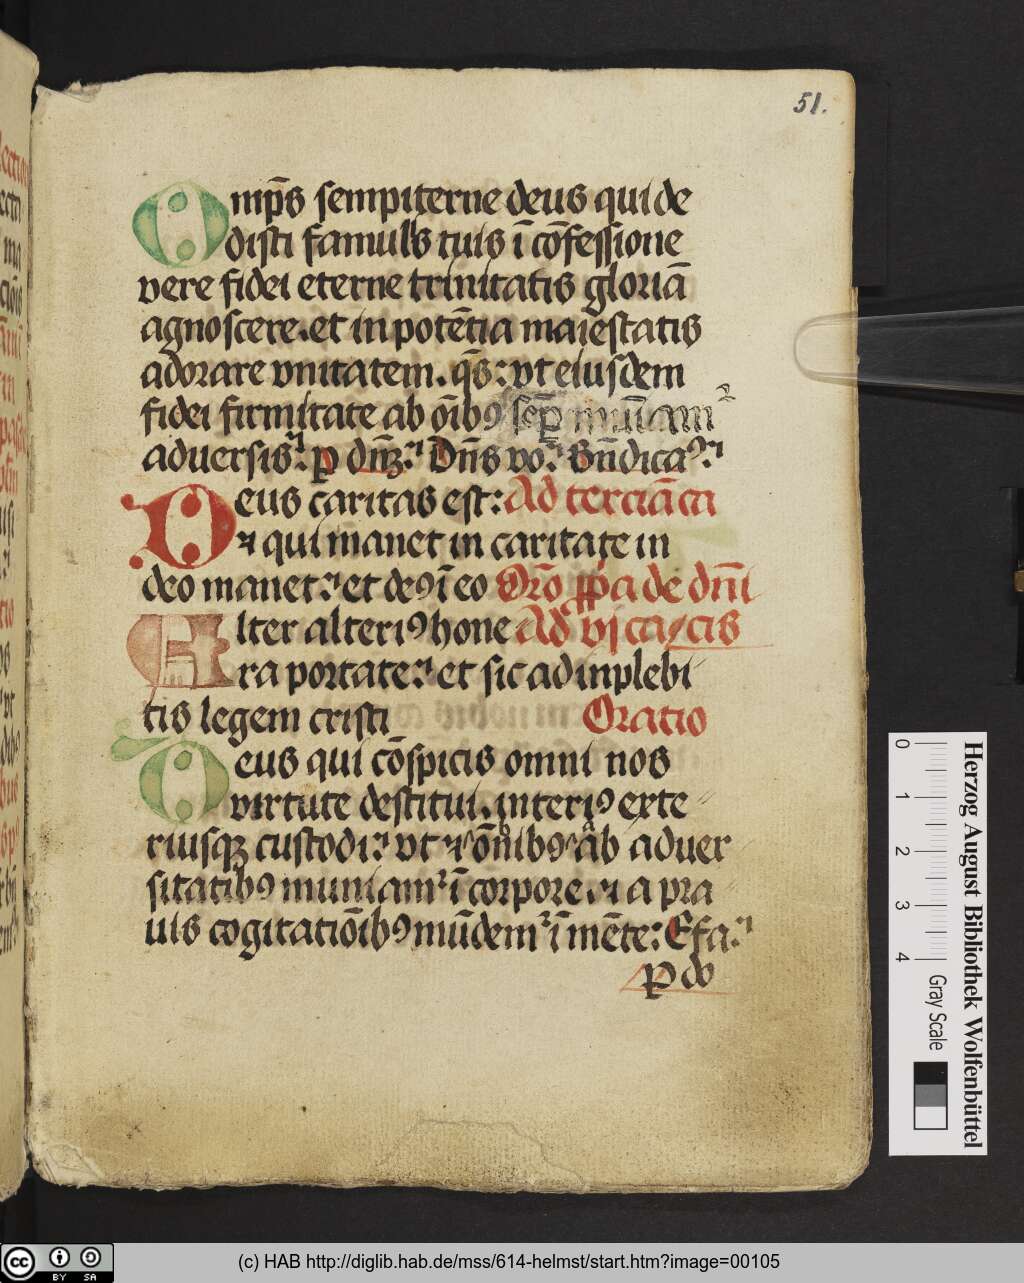 51.
Omp̄s sempiterne deus qui de
disti famulis tuis ī cōfessione
vere fidei eterne trinitatis gloriā
agnoscere. et in potētia maiestatis
adorare vnitatem. qs̄: vt eiusdem
fidei firmitate ab oīb9 semꝑ muniam
aduersis: ꝑ dn̄ꝫ: Dn̄s vo: Bn̄dica
Deus caritas est: Ad terciā ca
⁊ qui manet in caritate in
deo manet: et de9 ī eo Orō ꝓpa de dn̄i
Alter alteri9 hone Ad vj ca
ra portate: et sic adinplebi
tis legem cristi Oratio
Deus qui cōspicis omni nos
virtute destitui. interi9 exte
riusqꝫ custodi: vt ⁊ ōnib9 ab aduer
sitatib9 muniamr ī corpore. ⁊ a pra
uis cogitatiōib9 mūdemr ī mēte: E fa:
ꝑ do
0 1 2 3 4
Herzog August Bibliothek Wolfenbüttel
Gray Scale
cc BY SA
(c) HAB http://diglib.hab.de/mss/614-helmst/start.htm?image=00105